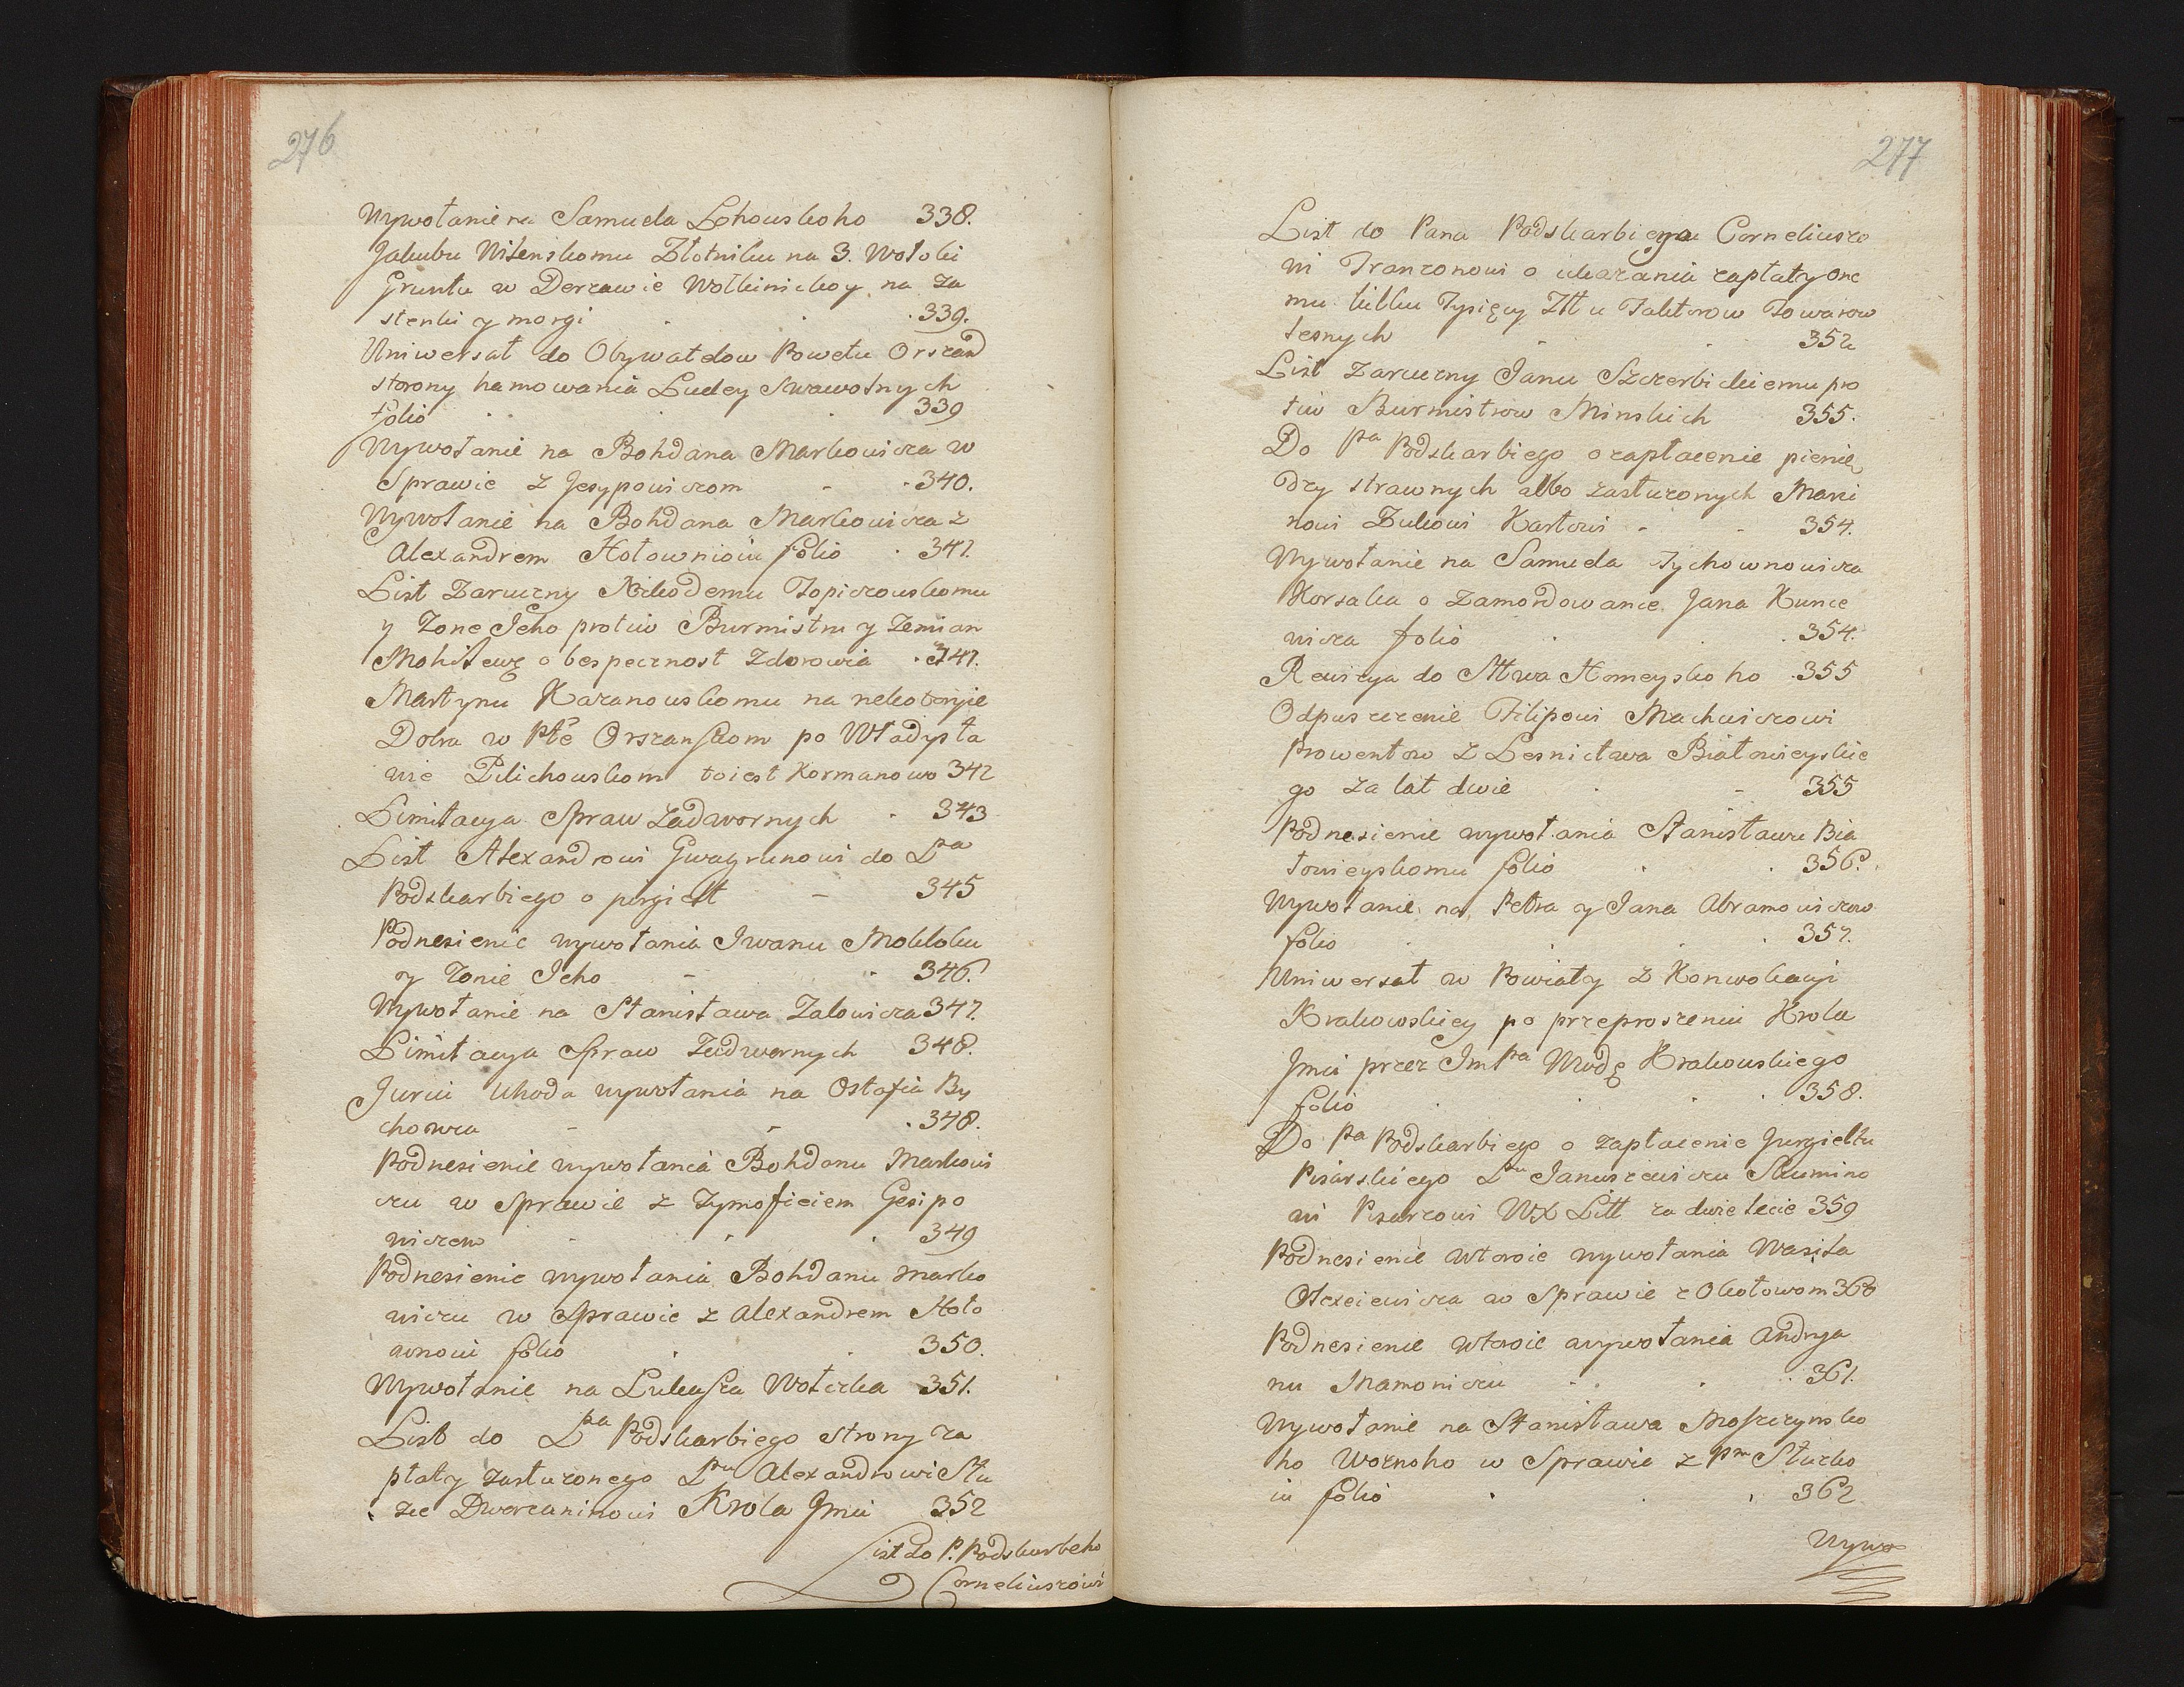 276
Wywołanie na Samuela Lhowskoho 338.
Jakubu Wilenskomu Złotniku na 3. Wołoki
Gruntu w Derzawie Wołkinickoy na Za
stenki y morgi . . . 339.
Uniwersał do Obywatelow Powetu Orszan
storony hamowania Ludey Swawolnych
folio . . . 339
Wywołanie na Bohdana Markowicza w
Sprawie z Jesypowiczom - . 340.
Wywołanie na Bohdana Markowicza z
Alexandrem Hołownioiu folio . 341.
List Zaruczny Nikodemu Topiczowskomu
y Zone Jeho protiw Burmistru y Zemian
Mohilewę o bespecznost Zdorowia . 341.
Martynu Kazanowskomu na nekotoryie
Dobra w Ptě Orszanskom po Władysła
wie Pilichowskom toiest Kormanowo 342
Limitacya Spraw Zadwornych . 343
List Alexandrowi Gwagninowi do Pa
Podskarbiego o jurgielt - 345
Podnesienie wywołania Iwanu Mokłoku
y Zonie Jeho - . 346.
Wywołanie na Stanisława Zalowicza 347.
Limitacya Spraw Zadwornych 348.
Juriu Uhoda wywołania na Ostafia By
chowca - - . 348.
Podnesienie wywołania Bohdanu Markowi
czu w Sprawie z Tymoficiem Gesipo
wiczem . . . 349
Podnesienie wywołania Bohdanu Marko
wiczu w Sprawie z Alexandrem Hoło
wnoiu folio . . 350.
Wywołanie na Lukasza Wołczka 351.
List do Pa Podskarbiego strony za
płaty zasłużonego Pnu Alexandrowi Słu
zce Dworzaninowi Krola Jmci 352
List do P. Podskarbeho
Corneliuszowi
277
List do Pana Podskarbiego Corneliuszo
wi Franzonowi o ukazania zapłaty one
mu kilku Tysięcy Złł u Faktorow Towarow
lesnych . . 352
List Zaruczny Janu Szczerbickiemu pro
tiw Burmistrow Minskich 355.
Do Pa Podskarbiego o zapłacenie pienię
dzy strawnych albo zasłuzonych Marci
nowi Zukowi Karłowi - - 354.
Wywołanie na Samuela Tychownowicza
Korsaka o Zamordowanie Jana Kunce
wicza folio . . 354.
Rewizya do Sttwa Homeyskoho . 355
Odpuszczenie Filipowi Machwiczowi
Prowentow z Lesnictwa Białowieyskie
go za lat dwie . - 355
Podnesienie wywołania Stanisławu Bia
łowieyskomu folio . . 356.
Wywołanie na Petra y Jana Abramowiczow
folio . . . . 357.
Uniwersał w Powiaty z Konwokacyi
Krakowskiey po przeproszeniu Krola
Jmci przez Jm Pa Wwodę Krakowskiego
folio . . . . 358.
Do Pa Podskarbiego o zapłacenie Jurgieltu
Pisarskiego Pu Januszewiczu Skumino
wi Pisarzowi WX Litt za dwie lecie 359
Podnesienie wtoroie wywołania Wasiła
Olexeiewicza w Sprawie z Okołowom 360
Podnesienie wtoroie wywołania Andrya
nu Mamoniczu . . . . 361.
Wywołanie na Stanisława Moszczynsko
ho Woznoho w Sprawie z Pm Słuzko
iu folio . . . 362
Wywo